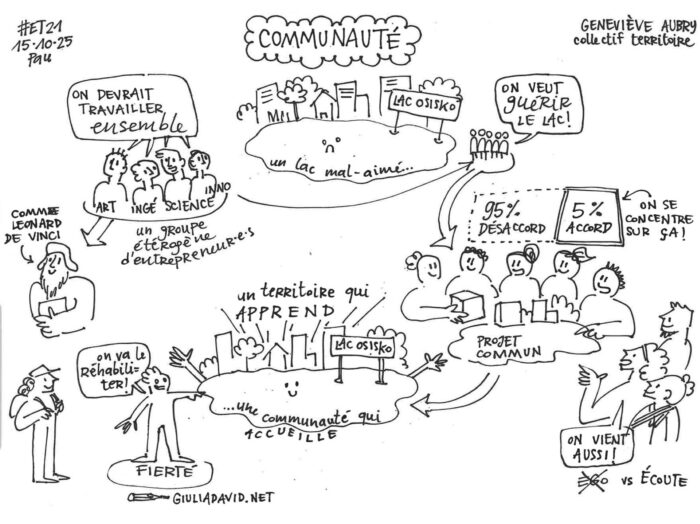 #ET21
15.10.25
Pau
COMMUNAUTÉ
GENEVIÈVE AUBRY
collectif territoire
ON DEVRAIT
TRAVAILLER
ensemble
ART INGÉ SCIENCE INNO
un groupe
étérogène
d'entrepreneur·e·s
LAC OSISKO
un lac mal-aimé...
ON VEUT
guérir
LE LAC!
COMME
LEONARD
DE VINCI
95%
DÉSACCORD
5%
ACCORD
ON SE
CONCENTRE
SUR ÇA!
un territoire qui
APPREND
LAC OSISKO
...une communauté qui
ACCUEILLE
PROJET
COMMUN
on va le
Réhabili-
ter!
FIERTÉ
ON VIENT
AUSSI!
EGO vs ÉCOUTE
GIULIADAVID.NET